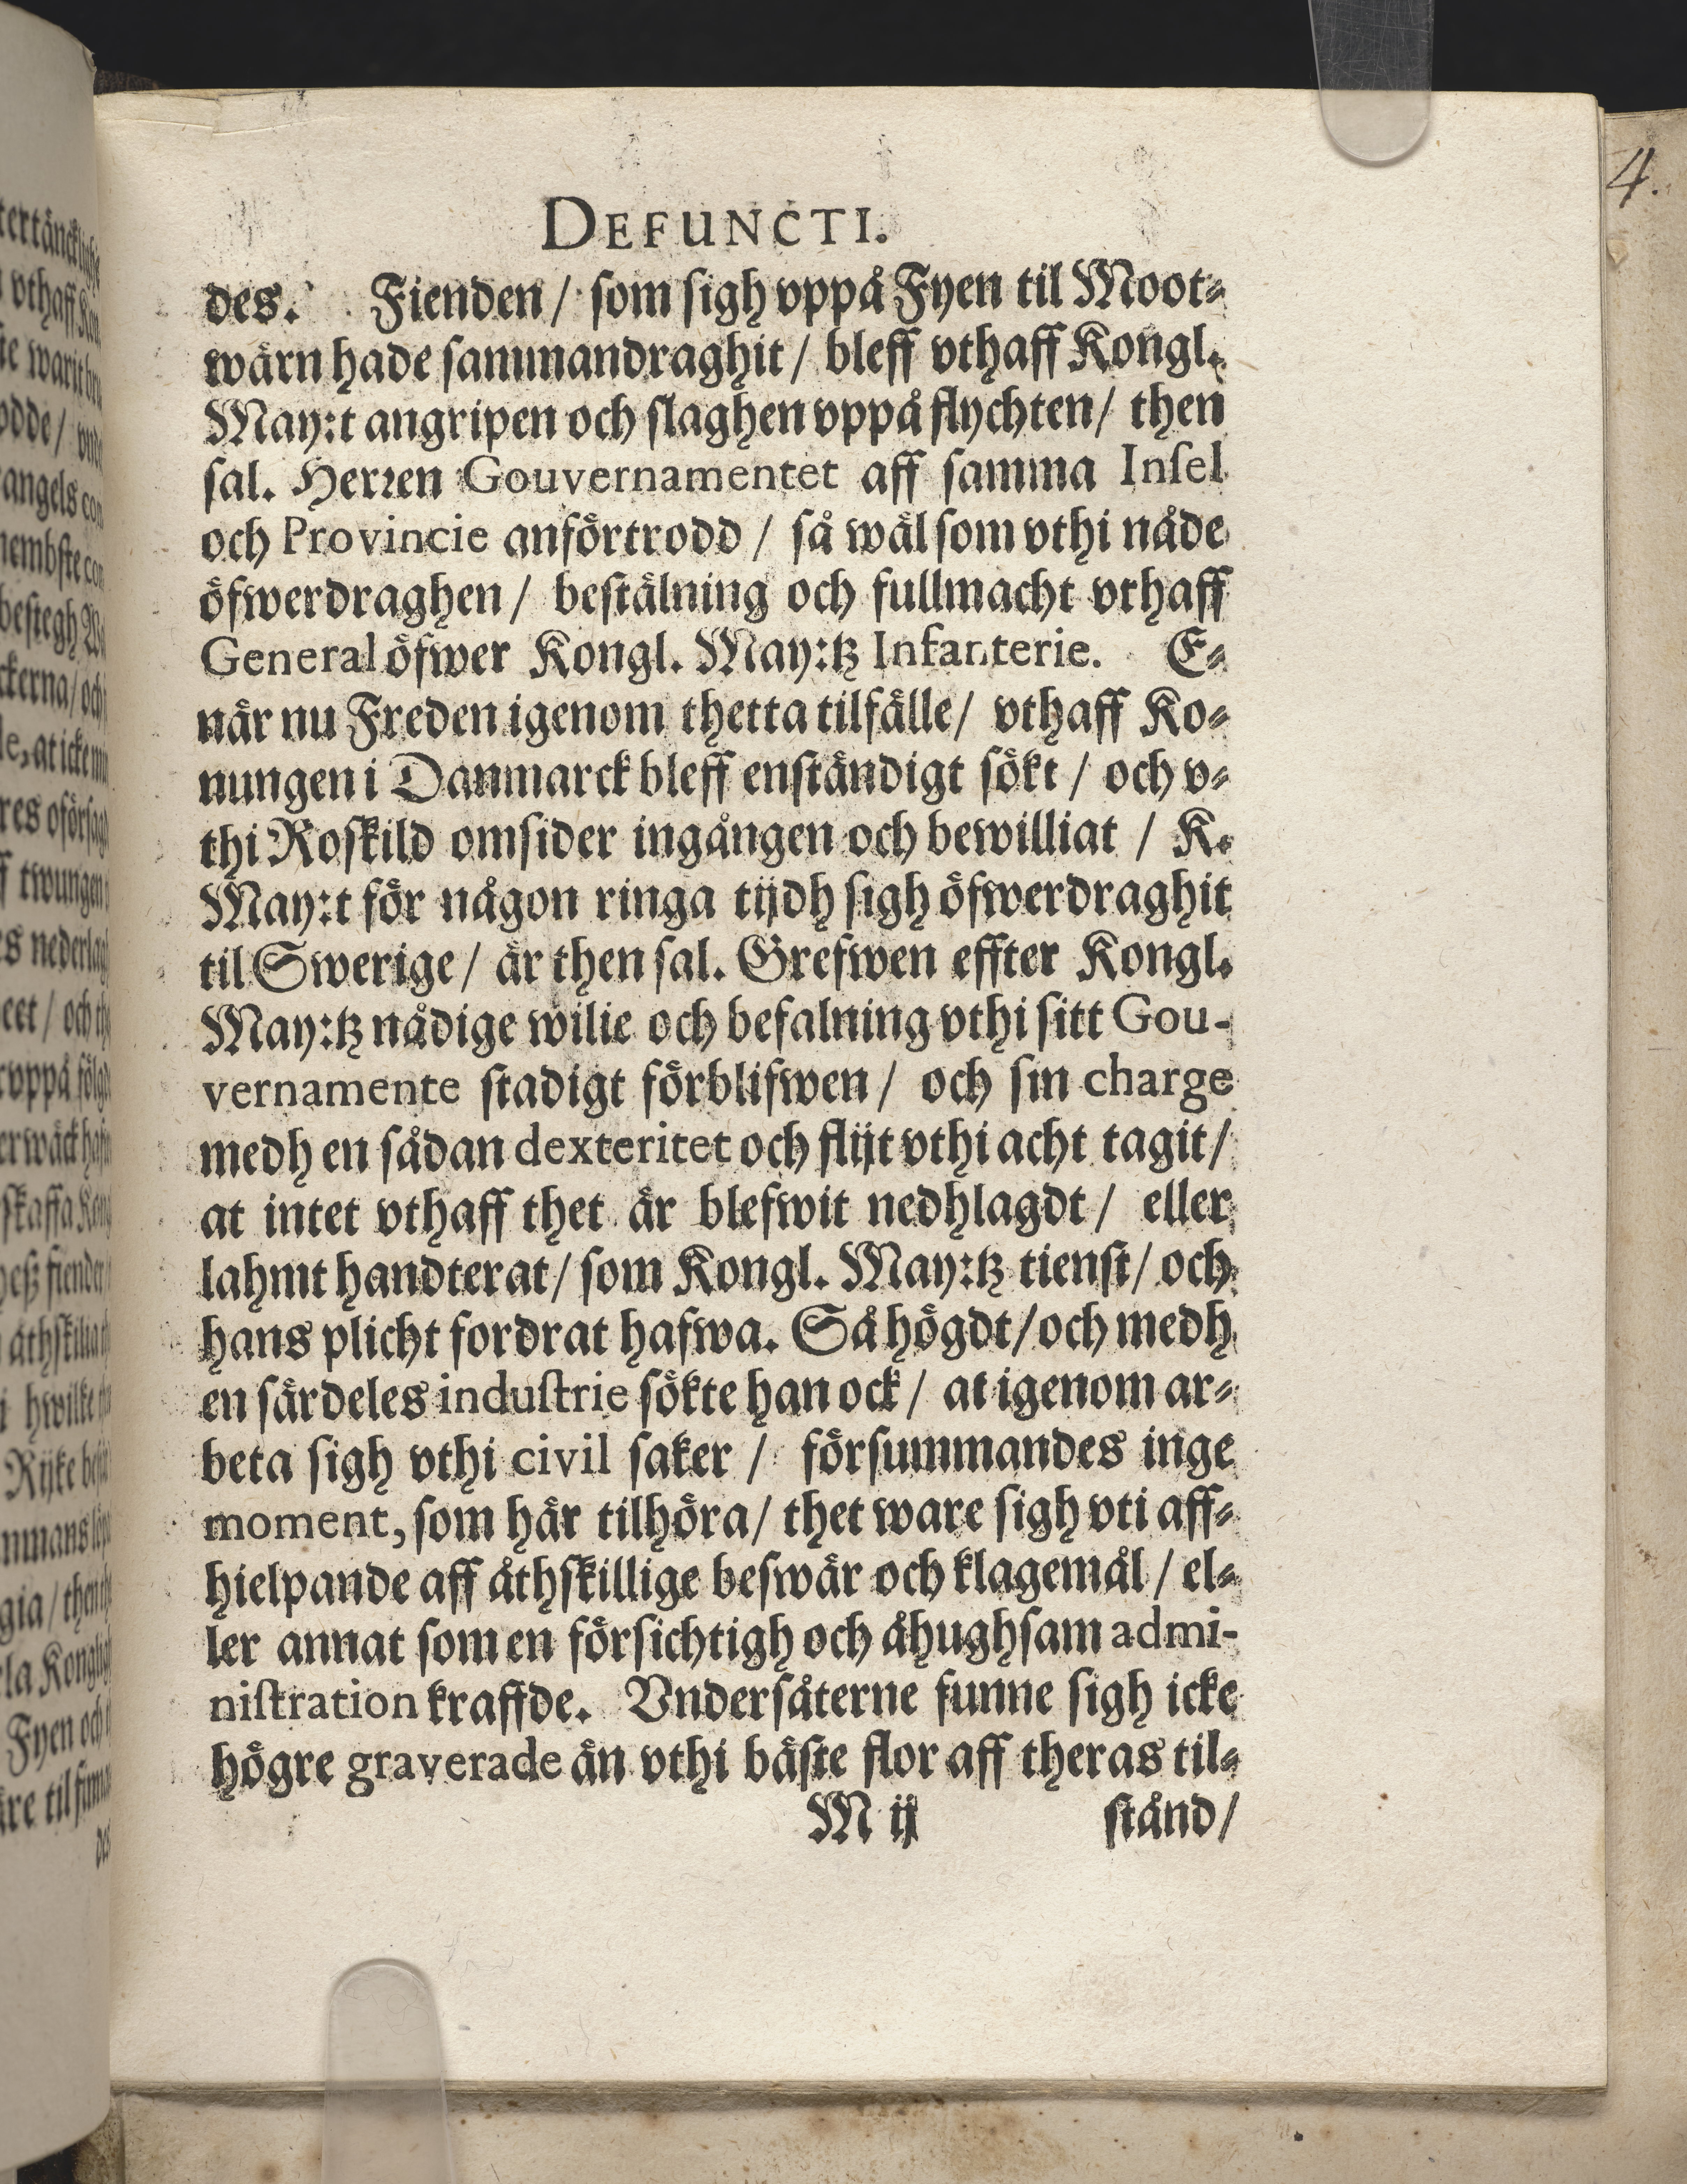 DEFUNCTI.
des. Fienden / som sigh vppå Fyen til Moot-
wärn hade sammandraghit / bleff vthaff Kongl.
May:t angripen och slaghen vppå flychten / then
sal. Herren Gouvernamentet aff samma Insel
och Provincie anförtrodd / så wäl som vthi nåde
öfwerdraghen / bestälning och fullmacht vthaff
General öfwer Kongl. May:tz Infanterie. E-
när nu Freden igenom thetta tilfälle / vthaff Ko-
nungen i Danmarck bleff enständigt sökt / och v-
thi Roskild omsider ingången och bewilliat / K.
May:t för någon ringa tijdh sigh öfwerdraghit
til Swerige / är then sal. Grefwen effter Kongl.
May:tz nådige wilie och befalning vthi sitt Gou-
vernamente stadigt förblifwen / och sin charge
medh en sådan dexteritet och flijt vthi acht tagit /
at intet vthaff thet är blefwit nedhlagdt / eller
lahmt handterat / som Kongl. May:tz tienst / och
hans plicht fordrat hafwa. Så högdt / och medh
en särdeles industrie sökte han ock / at igenom ar-
beta sigh vthi civil saker / försummandes inge
moment, som här tilhöra / thet ware sigh vti aff-
hielpande aff åthskillige beswär och klagemål / el-
ler annat som en försichtigh och åhughsam admi-
nistration kraffde. Vndersåterne funne sigh icke
högre graverade än vthi bäste flor aff theras til-
M ij stånd /
4.